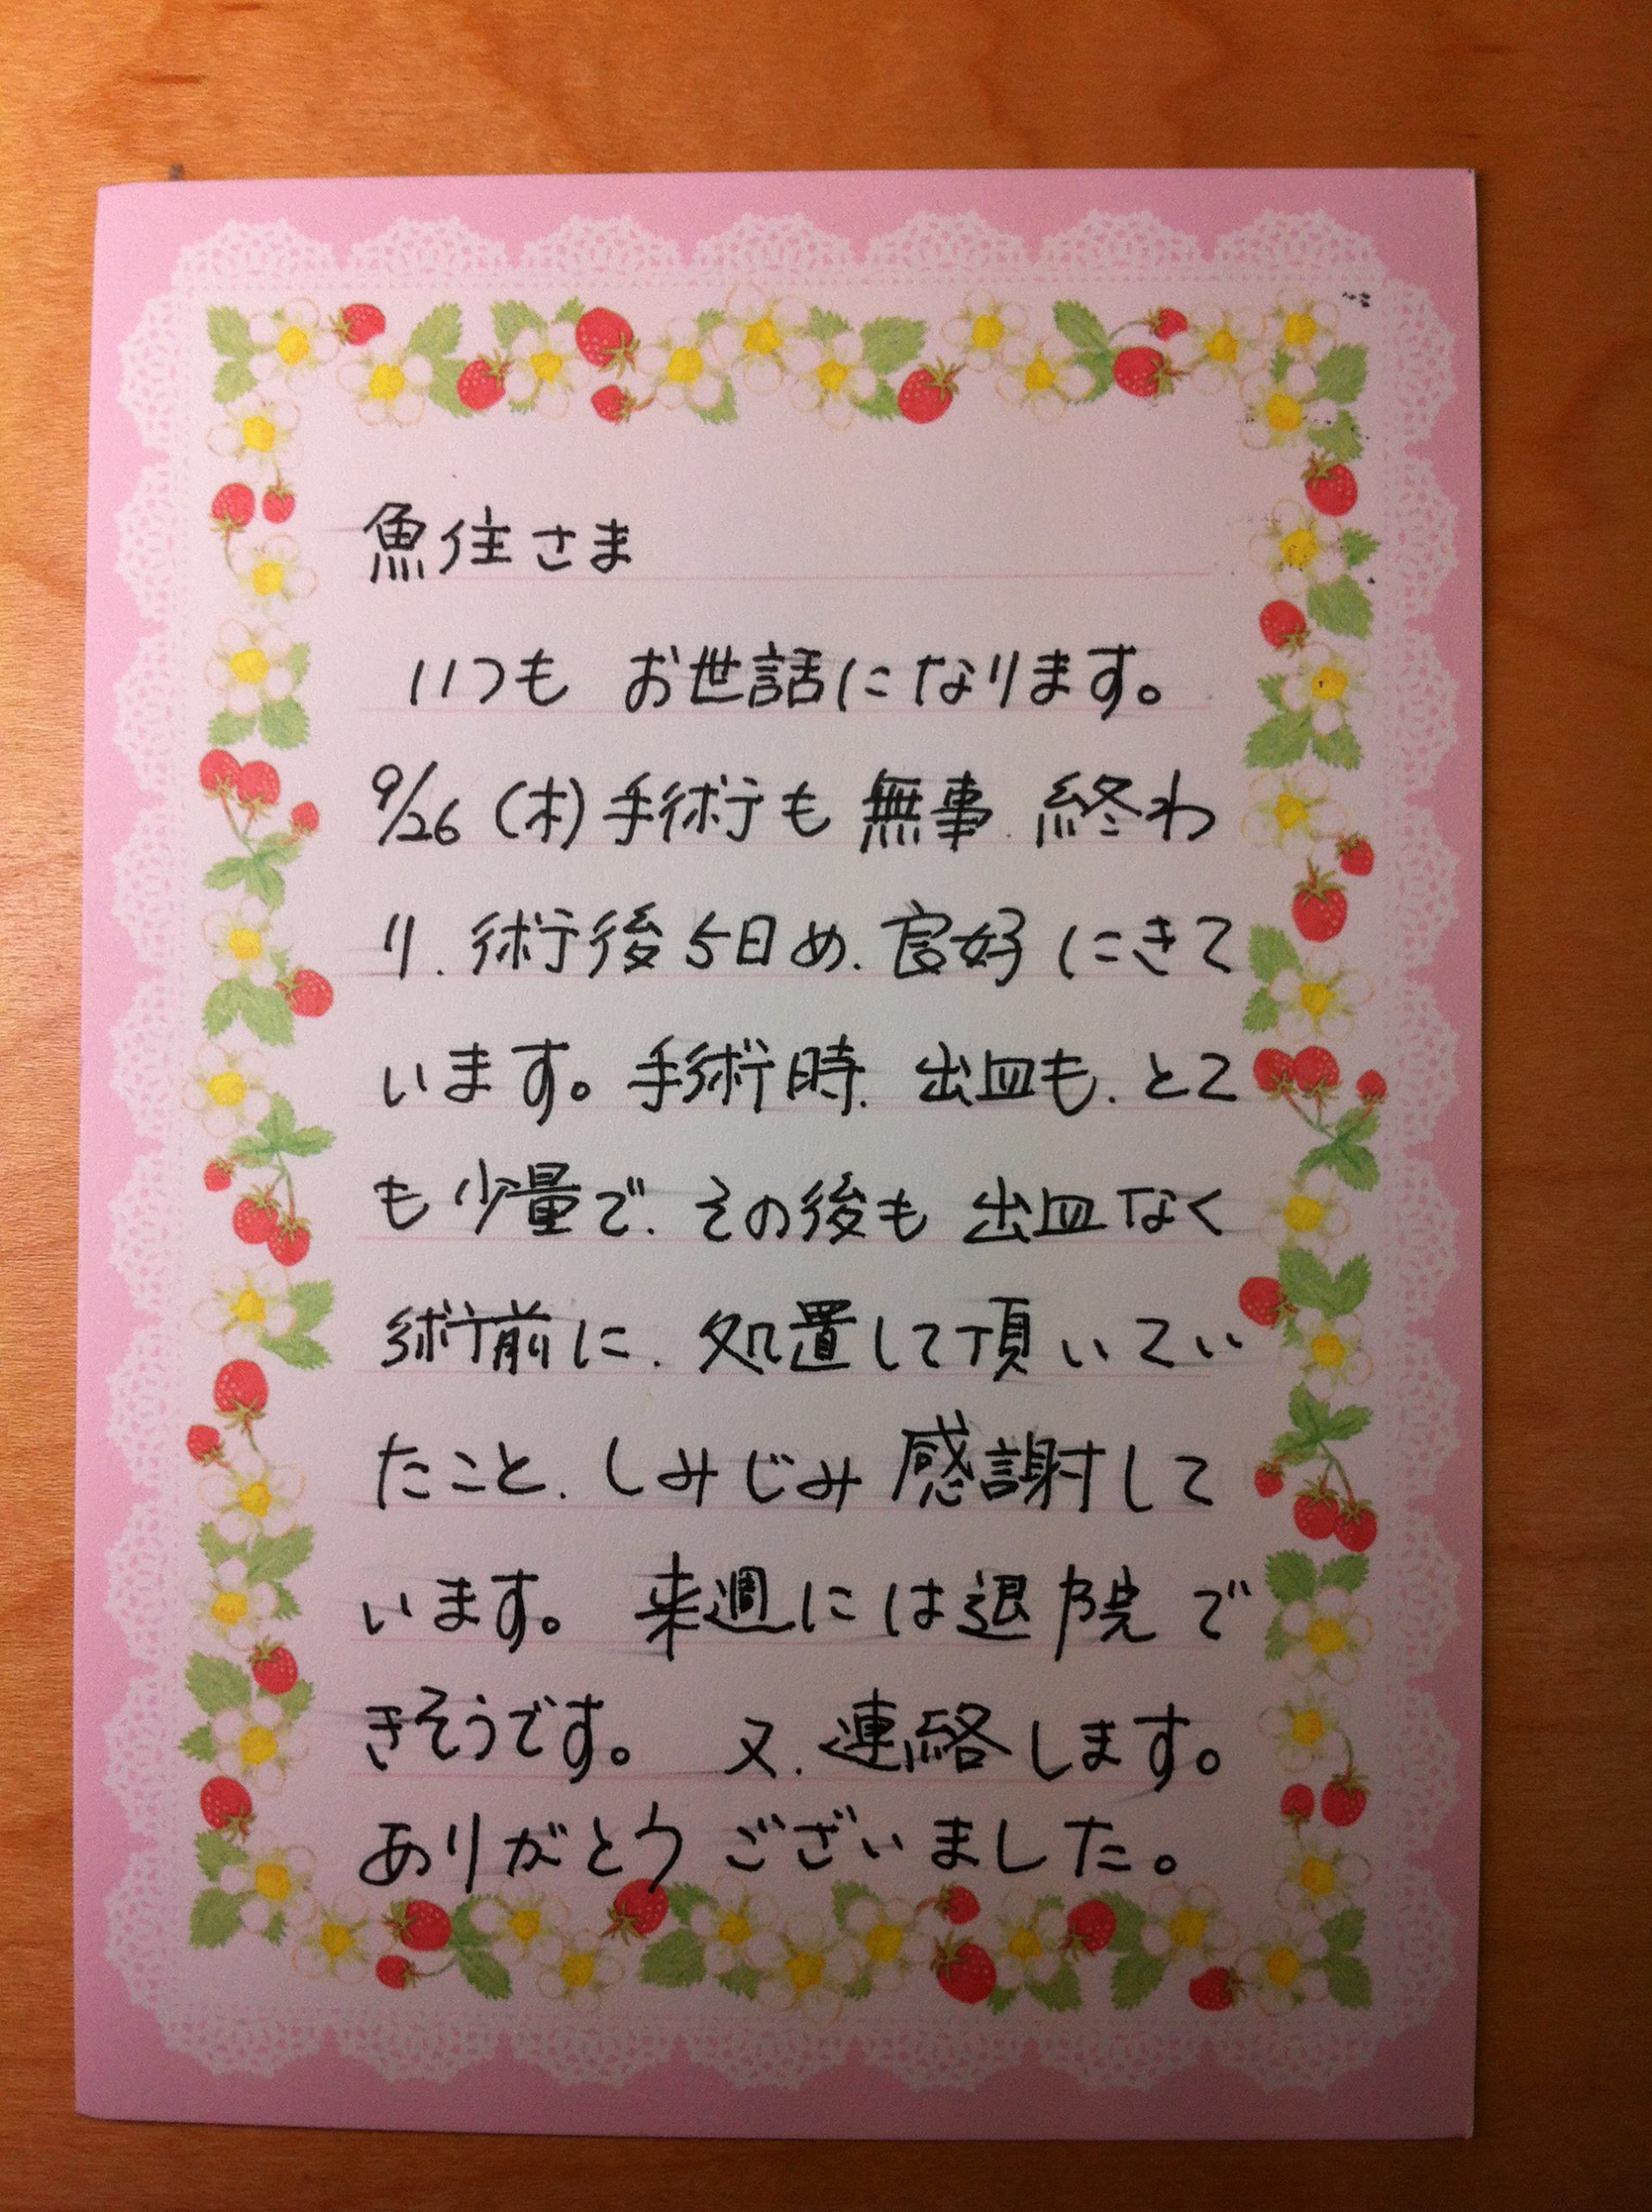 魚住さま
いつも お世話になります。
9/26 (木) 手術も 無事、終わ
り、術後5日め、良好にきて
います。手術時、出血も、とて
も少量で、その後も 出血なく
術前に、処置して頂いてい
たこと、しみじみ感謝して
います。 来週には退院で
きそうです。 又、連絡します。
ありがとうございました。